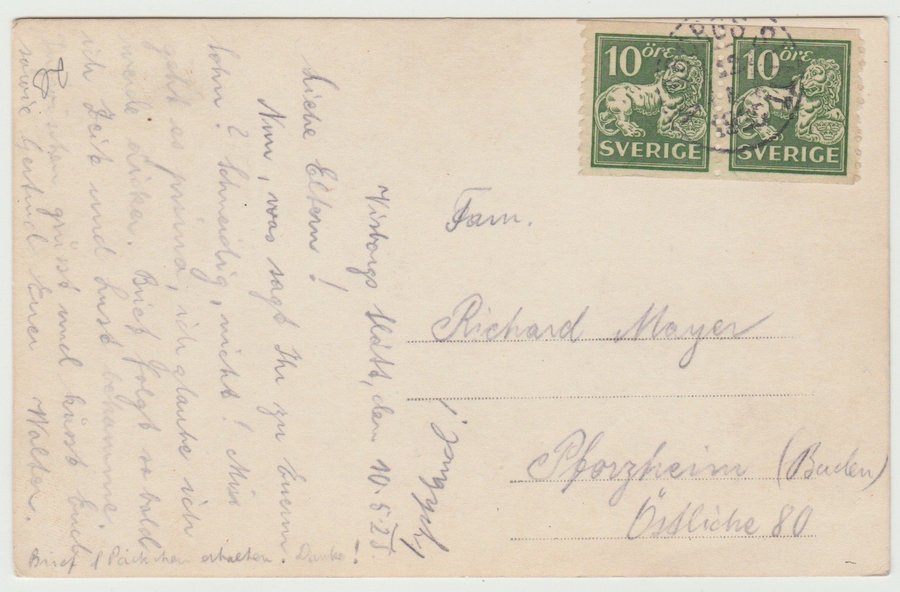 10 öre
SVERIGE
10 öre
SVERIGE
Visborgs Slätt, den 10.5.28
Liebe Eltern!
Nun, was sagt Ihr zu Euerm
Sohn? Schneidig, nicht! Mir
geht es prima, ich glaube ich
werde dicker. Brief folgt sobald
ich Zeit und Lust bekomme.
grüsst und küsst Euch
sowie Gertrud Euer Walter.
Brief & Päckchen erhalten. Danke!
Fam.
Richard Mayer
Pforzheim (Baden)
Östliche 80